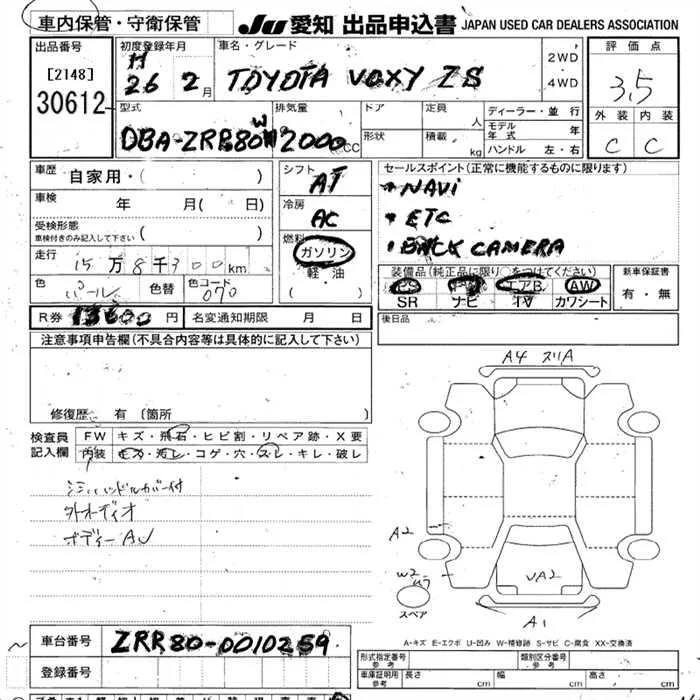 車内保管・守衛保管
JU 愛知 出品申込書 JAPAN USED CAR DEALERS ASSOCIATION
出品番号
[2148]
30612
初度登録年月
H
26 2月
車名・グレード
TOYOTA VOXY ZS
2WD
・
4WD
評価点
3.5
外装 内装
C C
型式
DBA-ZRR80W
排気量
2000cc
ドア
形状
定員
人
積載
kg
ディーラー・並行
モデル年式 年
ハンドル 左・右
車歴
自家用・( )
車検
年 月( 日)
受検形態
車検付きのみ記入して下さい ( )
走行
15万8千300km
色
パール
色替
色コード
070
シフト
AT
冷房
AC
燃料
ガソリン
軽・油
( )
セールスポイント(正常に機能するものに限ります)
・NAVi
・ETC
・BACK CAMERA
装備品(純正品に限り○をつけてください)
PS エアB. AW
SR ナビ TV カワシート
新車保証書
有・無
R券 13600円 名変通知期限 月 日
後日品
注意事項申告欄(不具合内容等は具体的に記入して下さい)
修復歴 有 (箇所
検査員
記入欄
FW キズ・飛石・ヒビ割・リペア跡・X要
内装 キズ・汚レ・コゲ・穴・スレ・キレ・破レ
ハンドルカバー付
外オーディオ
ボディーAU
A4 スリA
A2
W2
UA2
A1
スペア
A-キズ E-エクボ U-凹み W-補修跡 S-サビ C-腐食 XX-交換済
車台番号
ZRR80-0010259
登録番号
形式指定番号
参考
類別区分番号
参考
車庫証明用
参考
長さ cm 幅 cm 高さ cm